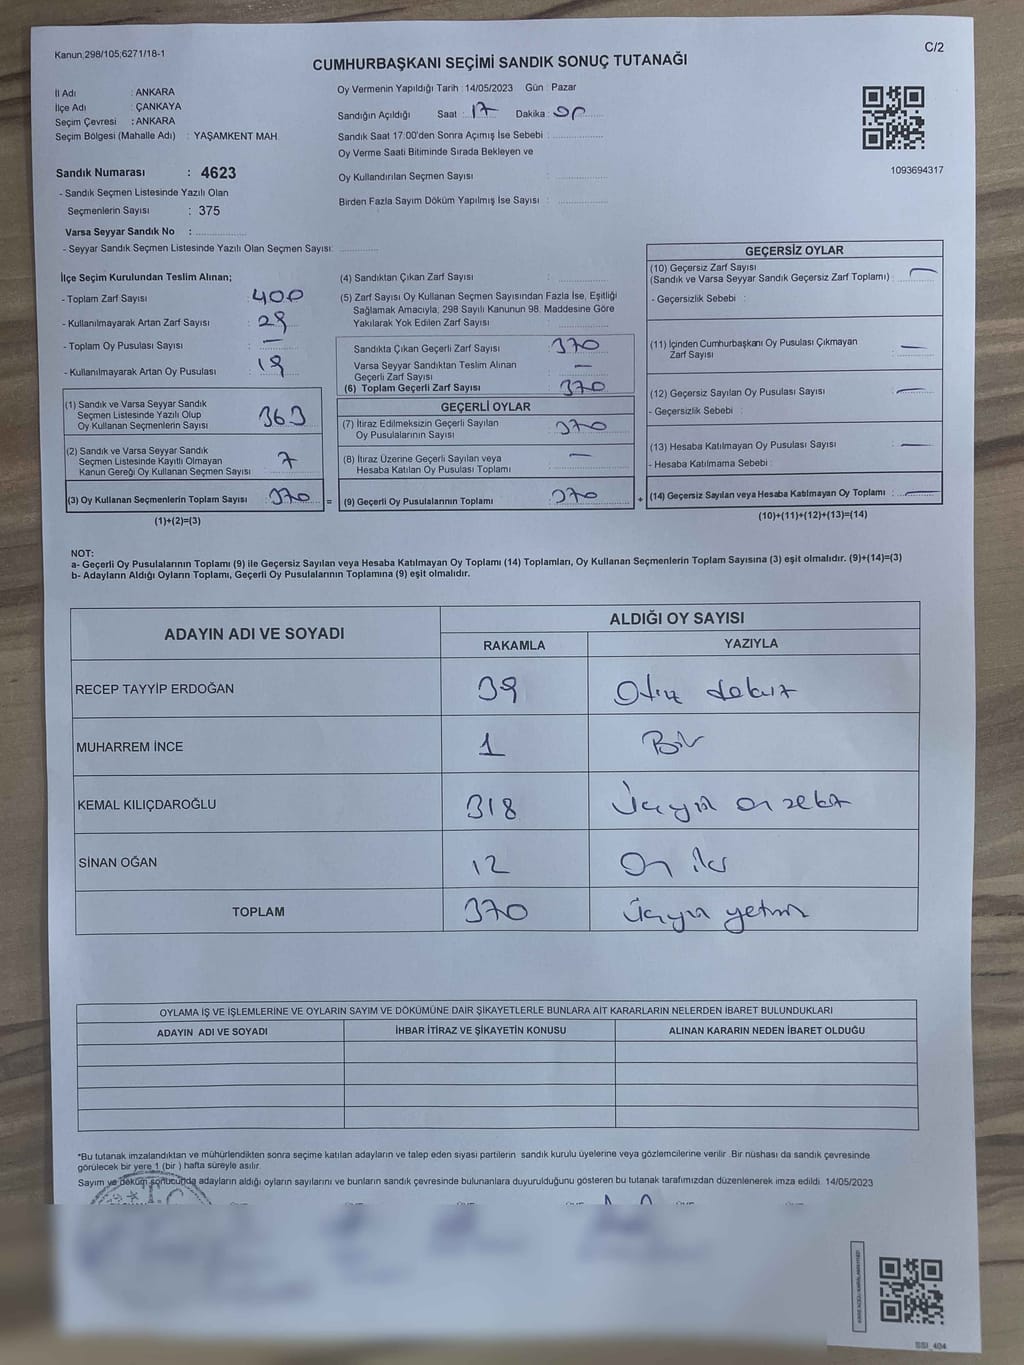 Kanun;298/105,6271/18-1
C/2
CUMHURBAŞKANI SEÇİMİ SANDIK SONUÇ TUTANAĞI
İl Adı : ANKARA
İlçe Adı : ÇANKAYA
Seçim Çevresi : ANKARA
Seçim Bölgesi (Mahalle Adı) : YAŞAMKENT MAH.
Sandık Numarası : 4623
- Sandık Seçmen Listesinde Yazılı Olan
Seçmenlerin Sayısı : 375
Varsa Seyyar Sandık No :
- Seyyar Sandık Seçmen Listesinde Yazılı Olan Seçmen Sayısı:
Oy Vermenin Yapıldığı Tarih :14/05/2023 Gün : Pazar
Sandığın Açıldığı Saat : 17 Dakika :
Sandık Saat 17:00'den Sonra Açımış İse Sebebi :
Oy Verme Saati Bitiminde Sırada Bekleyen ve
Oy Kullandırılan Seçmen Sayısı :
Birden Fazla Sayım Döküm Yapılmış İse Sayısı :
1093694317
İlçe Seçim Kurulundan Teslim Alınan;
- Toplam Zarf Sayısı : 400
- Kullanılmayarak Artan Zarf Sayısı : 29
- Toplam Oy Pusulası Sayısı : —
- Kullanılmayarak Artan Oy Pusulası : 19
(1) Sandık ve Varsa Seyyar Sandık
Seçmen Listesinde Yazılı Olup
Oy Kullanan Seçmenlerin Sayısı : 363
(2) Sandık ve Varsa Seyyar Sandık
Seçmen Listesinde Kayıtlı Olmayan
Kanun Gereği Oy Kullanan Seçmen Sayısı : 7
(3) Oy Kullanan Seçmenlerin Toplam Sayısı : 370 =
(1)+(2)=(3)
(4) Sandıktan Çıkan Zarf Sayısı :
(5) Zarf Sayısı Oy Kullanan Seçmen Sayısından Fazla İse, Eşitliği
Sağlamak Amacıyla, 298 Sayılı Kanunun 98. Maddesine Göre
Yakılarak Yok Edilen Zarf Sayısı :
Sandıkta Çıkan Geçerli Zarf Sayısı : 370
Varsa Seyyar Sandıktan Teslim Alınan
Geçerli Zarf Sayısı : —
(6) Toplam Geçerli Zarf Sayısı : 370
GEÇERLİ OYLAR
(7) İtiraz Edilmeksizin Geçerli Sayılan
Oy Pusulalarının Sayısı : 370
(8) İtiraz Üzerine Geçerli Sayılan veya
Hesaba Katılan Oy Pusulası Toplamı : —
(9) Geçerli Oy Pusulalarının Toplamı : 370 +
GEÇERSİZ OYLAR
(10) Geçersiz Zarf Sayısı
(Sandık ve Varsa Seyyar Sandık Geçersiz Zarf Toplamı) : —
- Geçersizlik Sebebi :
(11) İçinden Cumhurbaşkanı Oy Pusulası Çıkmayan
Zarf Sayısı : —
(12) Geçersiz Sayılan Oy Pusulası Sayısı : —
- Geçersizlik Sebebi :
(13) Hesaba Katılmayan Oy Pusulası Sayısı : —
- Hesaba Katılmama Sebebi :
(14) Geçersiz Sayılan veya Hesaba Katılmayan Oy Toplamı : —
(10)+(11)+(12)+(13)=(14)
NOT:
a- Geçerli Oy Pusulalarının Toplamı (9) ile Geçersiz Sayılan veya Hesaba Katılmayan Oy Toplamı (14) Toplamları, Oy Kullanan Seçmenlerin Toplam Sayısına (3) eşit olmalıdır. (9)+(14)=(3)
b- Adayların Aldığı Oyların Toplamı, Geçerli Oy Pusulalarının Toplamına (9) eşit olmalıdır.
ADAYIN ADI VE SOYADI
ALDIĞI OY SAYISI
RAKAMLA YAZIYLA
RECEP TAYYİP ERDOĞAN 39 Otuz dokuz
MUHARREM İNCE 1 Bir
KEMAL KILIÇDAROĞLU 318 Üçyüz on sekiz
SİNAN OĞAN 12 On iki
TOPLAM 370 Üçyüz yetmiş
OYLAMA İŞ VE İŞLEMLERİNE VE OYLARIN SAYIM VE DÖKÜMÜNE DAİR ŞİKAYETLERLE BUNLARA AİT KARARLARIN NELERDEN İBARET BULUNDUKLARI
ADAYIN ADI VE SOYADI İHBAR İTİRAZ VE ŞİKAYETİN KONUSU ALINAN KARARIN NEDEN İBARET OLDUĞU
*Bu tutanak imzalandıktan ve mühürlendikten sonra seçime katılan adayların ve talep eden siyasi partilerin sandık kurulu üyelerine veya gözlemcilerine verilir. Bir nüshası da sandık çevresinde
görülecek bir yere 1 (bir ) hafta süreyle asılır.
Sayım ve döküm sonucunda adayların aldığı oyların sayılarını ve bunların sandık çevresinde bulunanlara duyurulduğunu gösteren bu tutanak tarafımızdan düzenlenerek imza edildi. 14/05/2023
T.C.
SSI_404